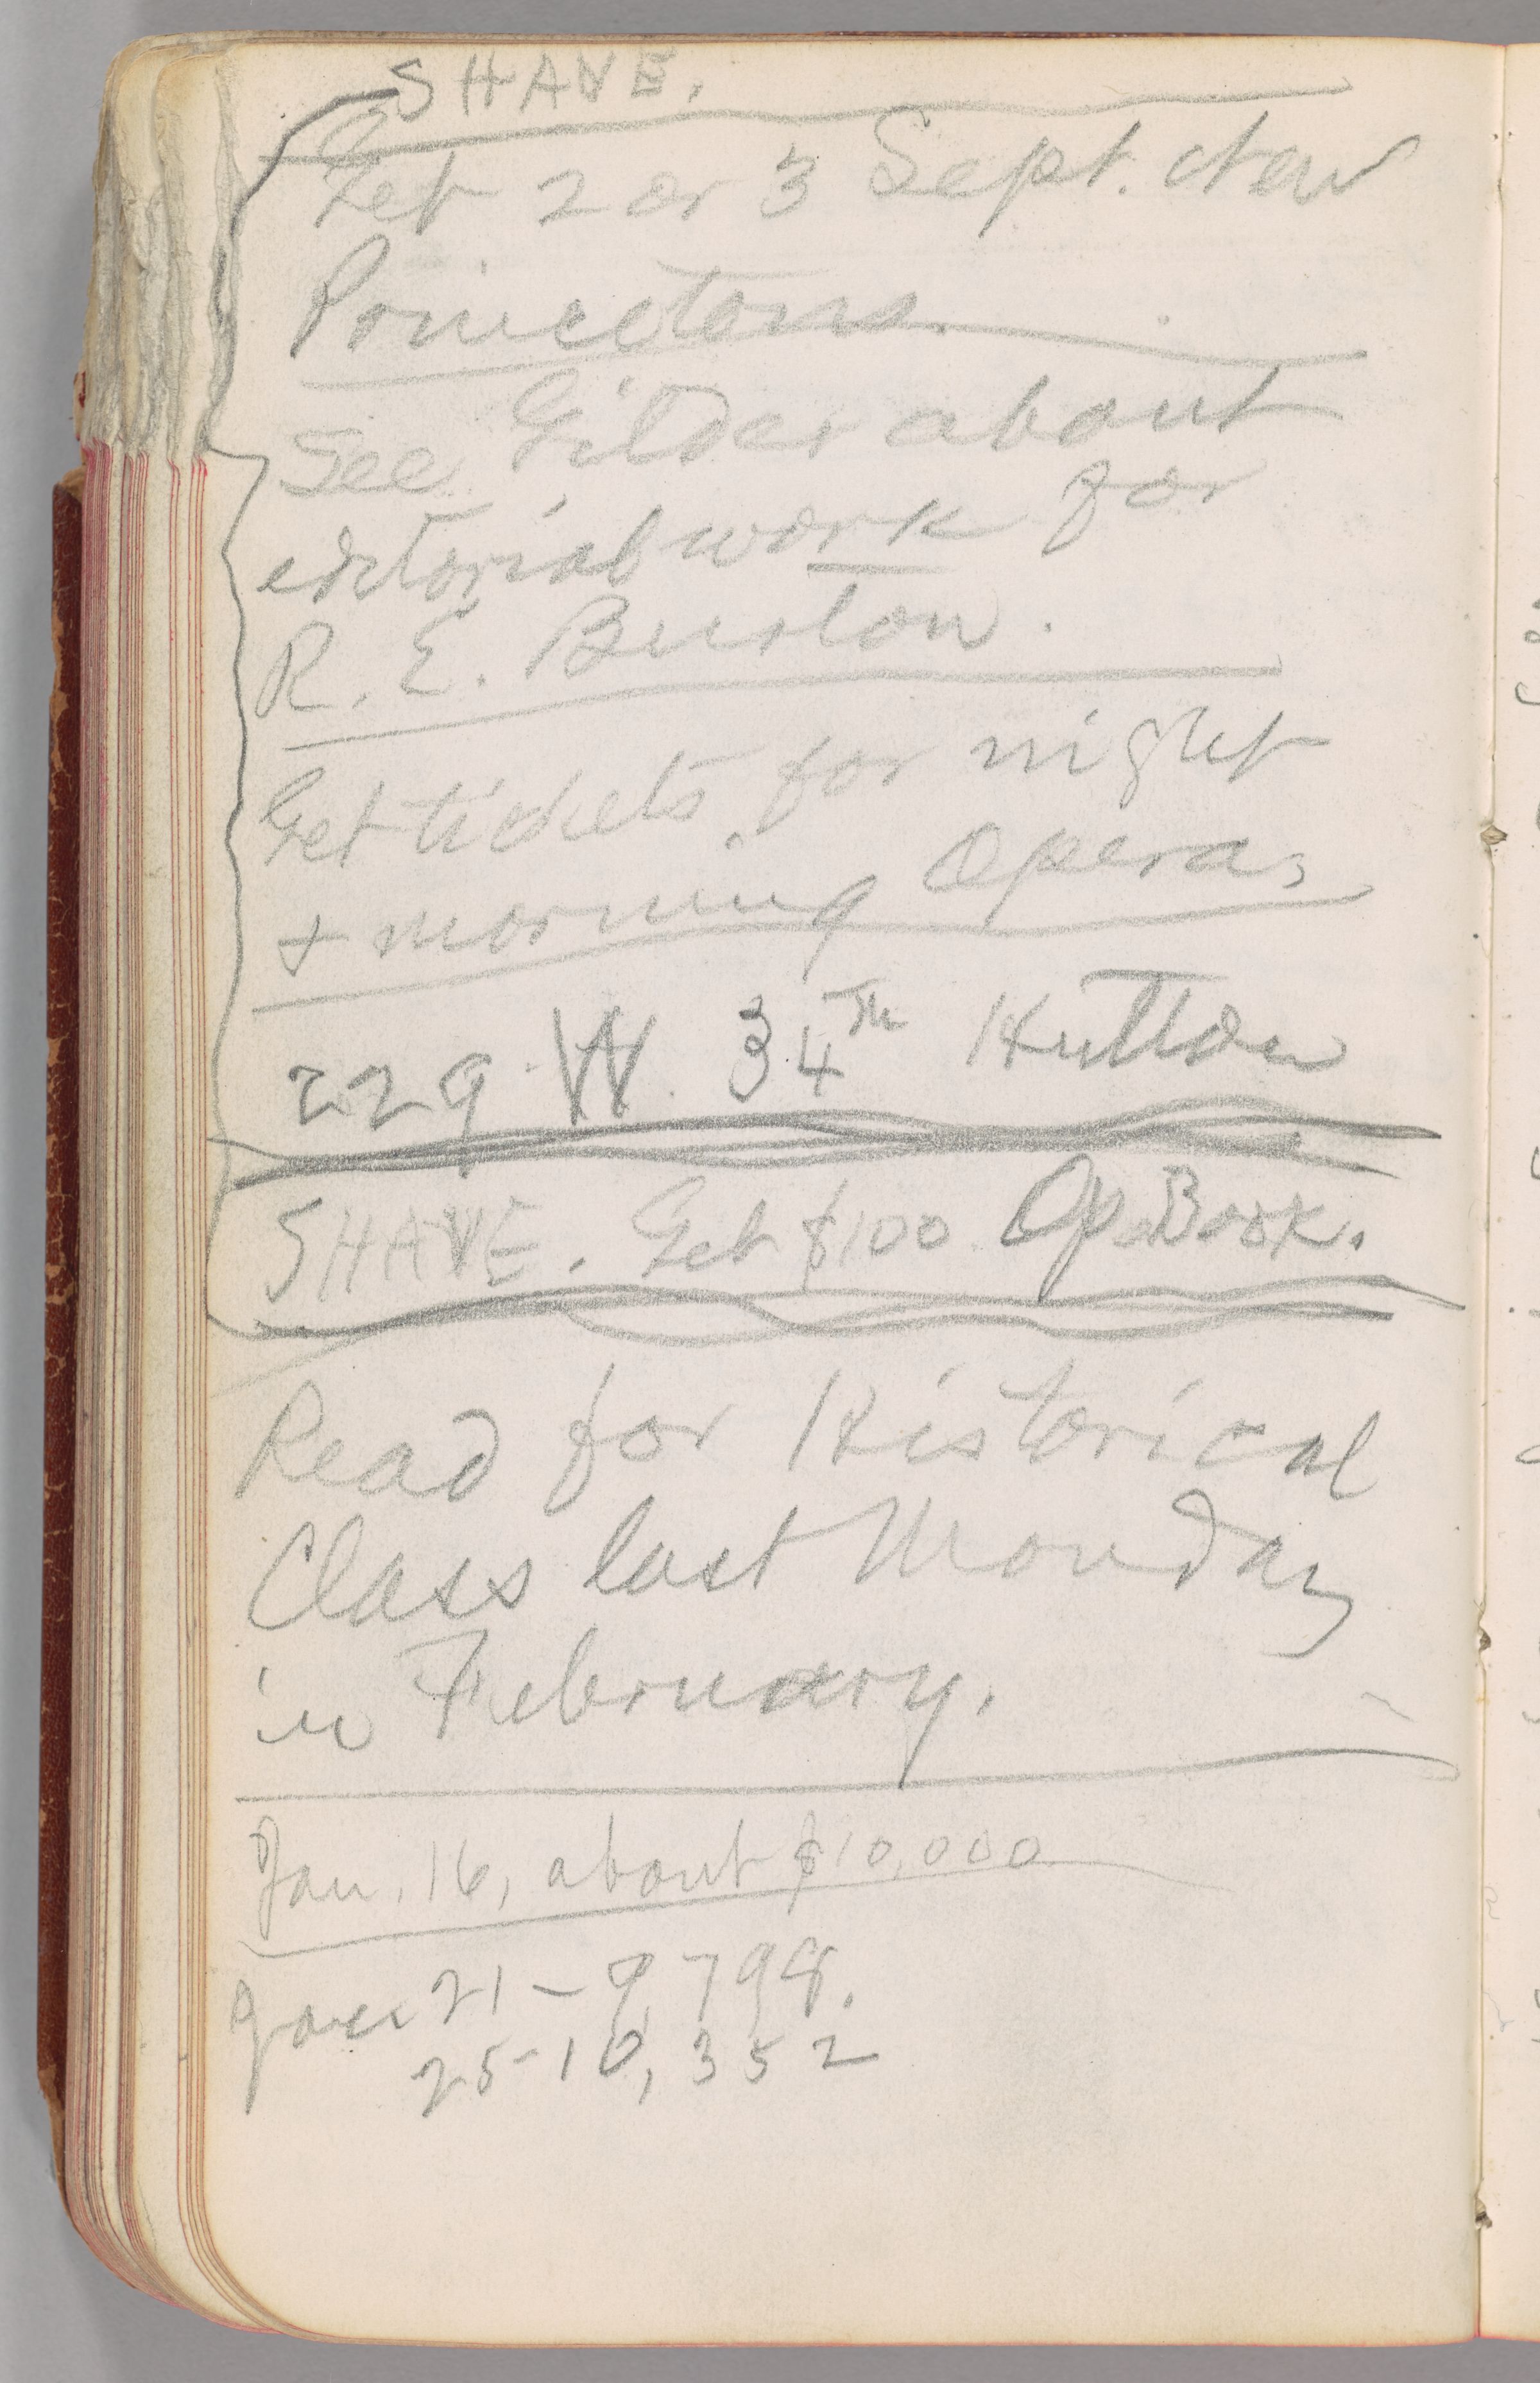 SHAVE.
Get 2 or 3 Sept. New
Princetons.
See Gilder about
editorial work for
R. E. Burton.
Get tickets for night
+ morning Opera,
229 W. 34th Hutton
SHAVE. Get $100. Op. Book.
Read for Historical
Class last Monday
in February.
Jan. 16, about $10,000
Jan 21 – 9,798.
25-10,352